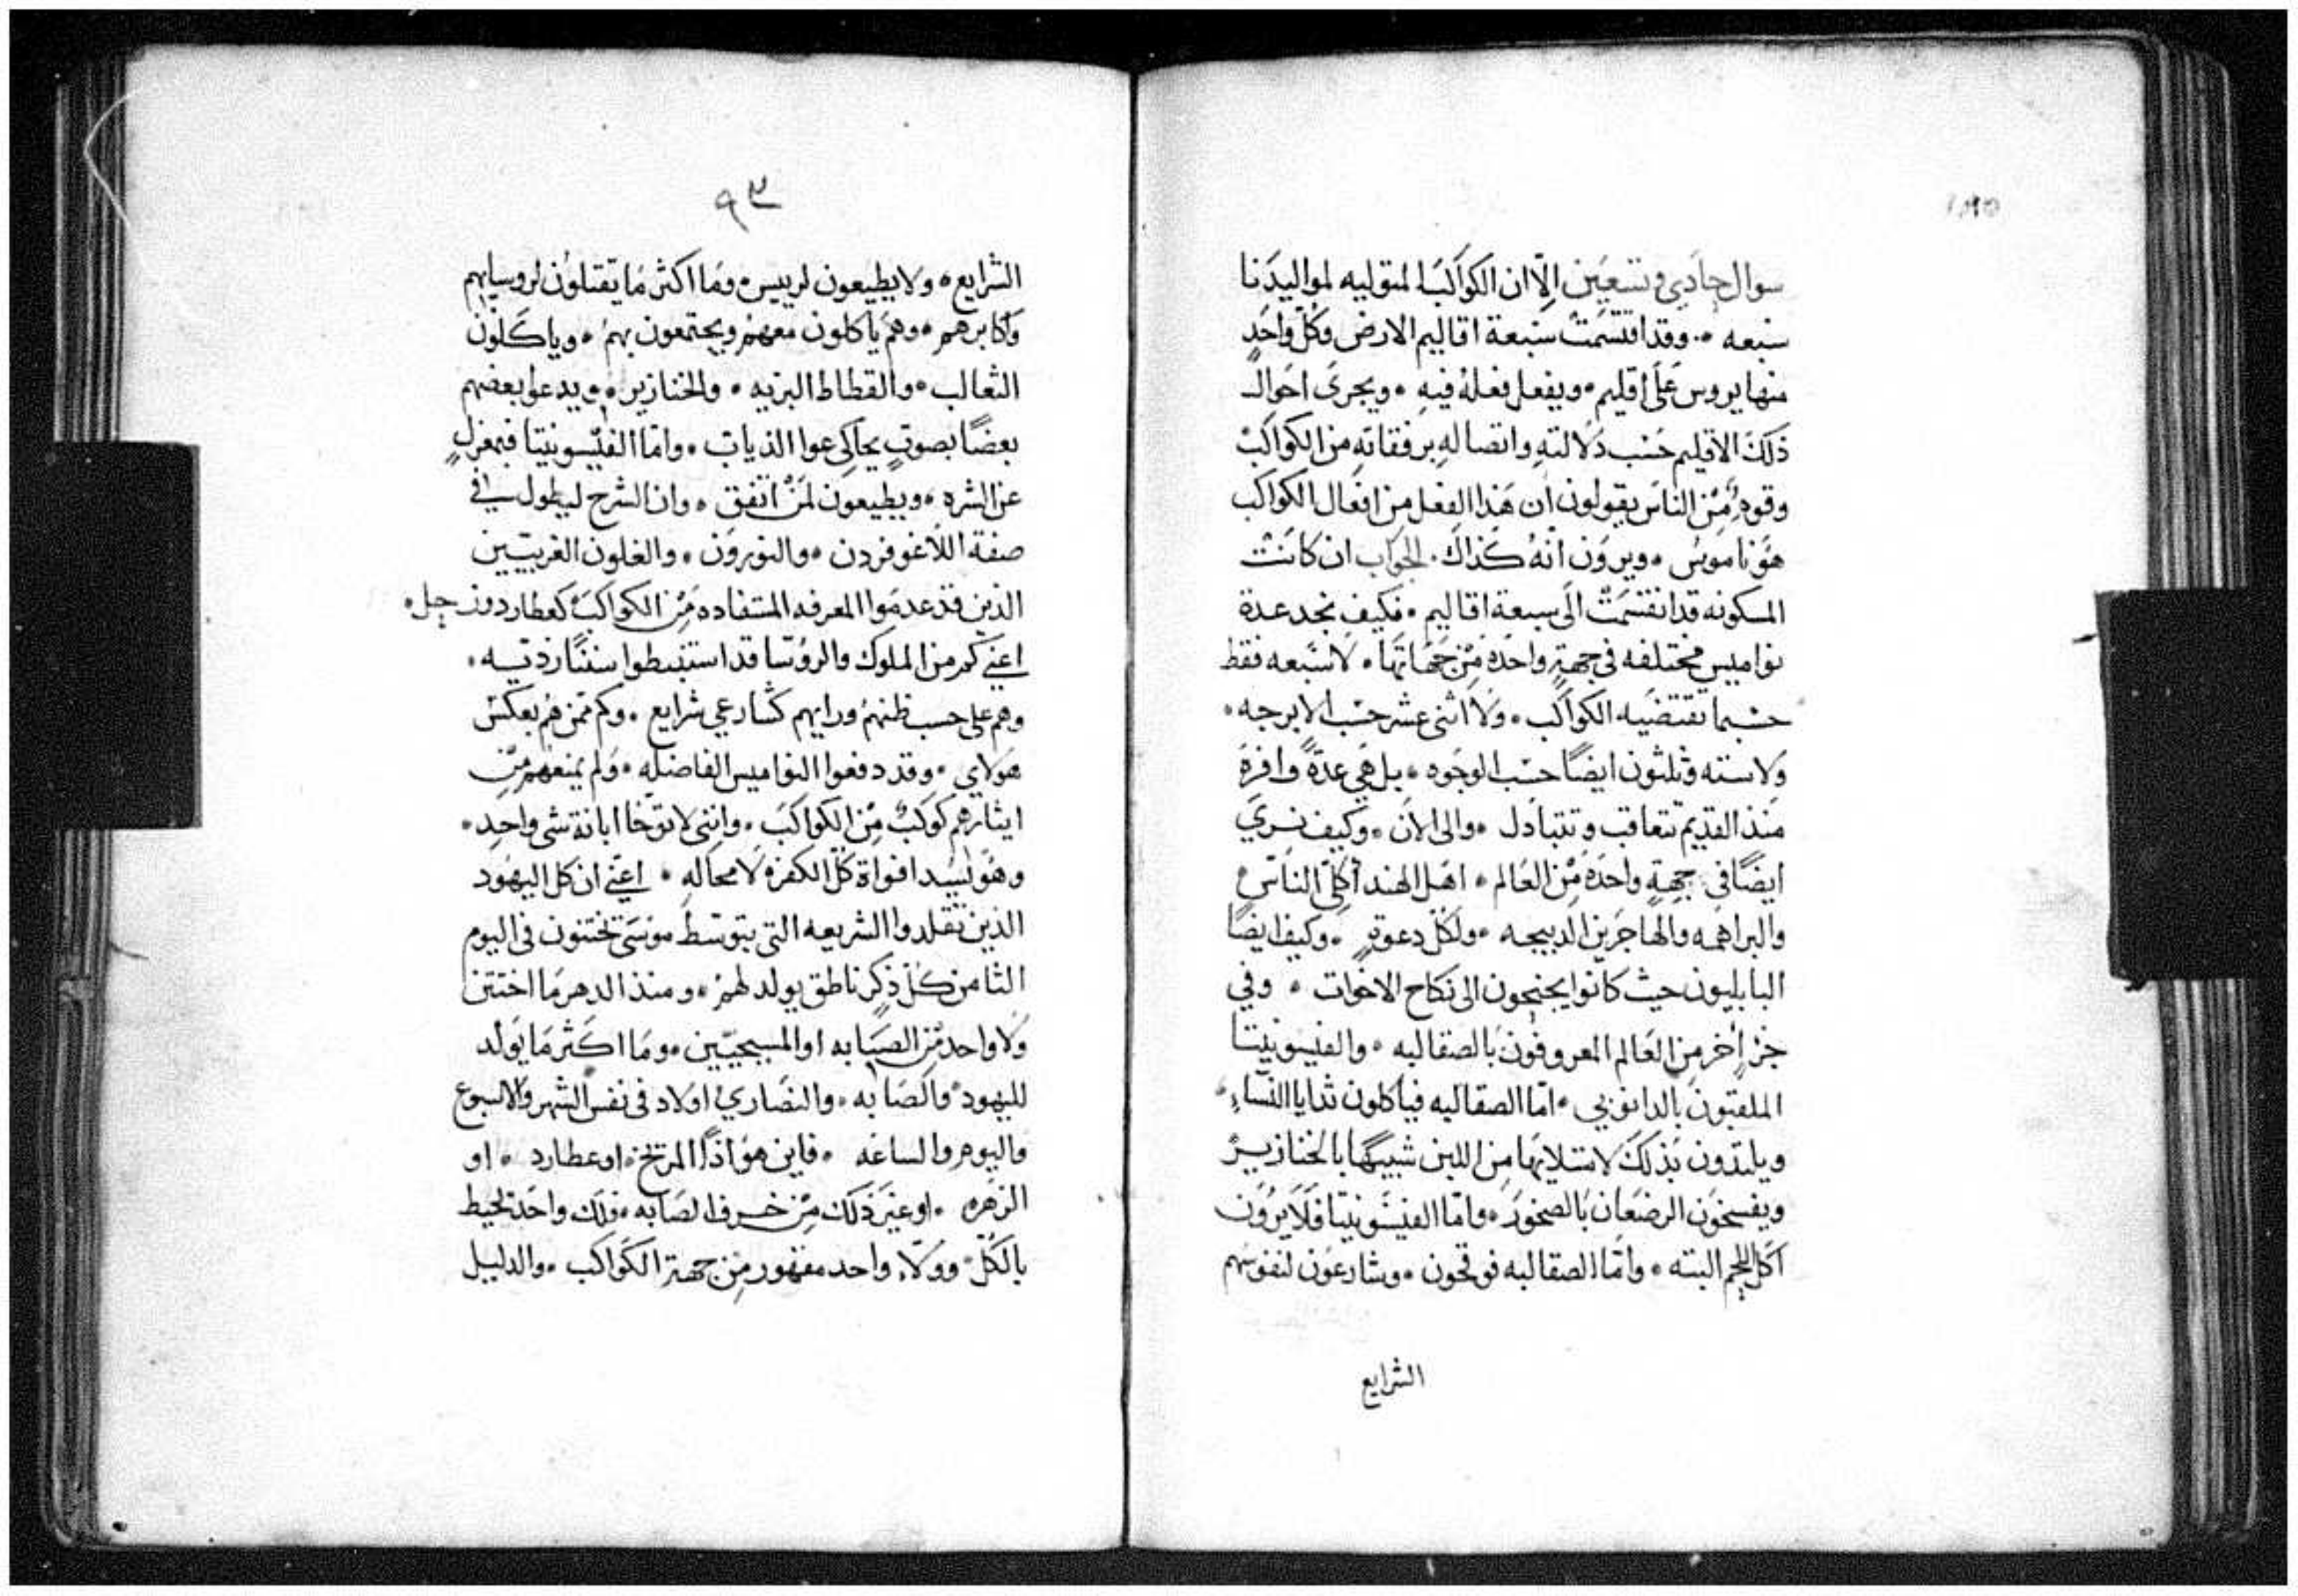 سوال حادي وتسعين الّا ان الكواكب المتوليه لمواليدنا
سبعه . وقد اقتسمت سبعة اقاليم الارض وكل واحدٍ
منها يروس على اقليم . ويفعل فعله فيه . ويجرى احوال
ذلك الاقليم حسب دلالته واتصاله برفقاته من الكواكب
وقوم من الناس يقولون ان هذا الفعل من افعال الكواكب
هو ناموس . ويرون انه كذاك . الجواب ان كانت
المسكونه قد انقسمت الى سبعة اقاليم . فكيف نجد عدة
نواميس مختلفه في جهةٍ واحده من جهاتها . لا سبعه فقط
حسبما تقتضيه الكواكب . ولا اثنى عشر حسب الابرجه .
ولا سته وثلثون ايضًا حسب الوجوه . بل هي عدةً وافرة
منذ القديم تتعاقب وتتبادل . والى الان . وكيف نري
ايضًا في جهةٍ واحده من العالم . اهل الهند أكلي الناس
والبراهمه والهاجرين الدبيحه . ولكل دعوةٍ . وكيف ايضًا
البابليون حيث كانوا يجنحون الى نكاح الاخوات . وفي
جزءٍ اخر من العالم المعروفون بالصقالبه . والفيسونيتا
الملقبون بالدانوبي . امّا الصقالبه فياكلون ثدايا النساء .
ويلتذون بذلك لامتلايها من اللبن شبيهًا بالخنازير
ويفسخون الرضعان بالصخور . وامّا الفيسونيتا فلا يرون
اكل اللحم البته . وامّا الصقالبه فوقحون . وشارعون لنفوسهم
الشرايع
٩٣
الشرايع . ولا يطيعون لرييس . وما اكثر ما يقتلون لروسايهم
واكابرهم . وهم ياكلون معهم ويجتمعون بهم . وياكلون
الثعالب . والقطاط البريه . والخنازير . ويدعوا بعضهم
بعضًا بصوتٍ يحاكي عوا الذياب . وامّا الفيسونيتا فبمعزلٍ
عن الشره . ويطيعون لمن اتفق . وان الشرح ليطول في
صفة اللاغوفردن . والنورون . والغلون الغربيين
الذين قد عدموا المعرفه المستفاده من الكواكب كعطارد وزحل .
اعني كم من الملوك والروسا قد استنبطوا سننًا رديه .
وهم على حسب ظنهم ورايهم كشارعي شرايع . وكم ممن هم بعكس
هولاي . وقد دفعوا النواميس الفاضله . ولم يمنعهم من
ايثارهم كوكبٌ من الكواكب . وانني لاتوخا ابانة شى واحدٍ .
وهو ليسد افواة كل الكفره لا محاله . اعني ان كل اليهود
الذين تقلدوا الشريعه التي بتوسط موسى تختتنون في اليوم
الثامن كل ذكرٍ ناطق يولد لهم . ومنذ الدهر ما اختتن
ولا واحد من الصابه او المسيحيين . وما اكثر ما يولد
لليهود والصابه . والنصاري اولاد في نفس الشهر والاسبوع
واليوم والساعه . فاين هو اذًا المريخ . او عطارد . او
الزهره . او غير ذلك من خرف الصابه . فلك واحد تحيط
بالكل . وولا واحد مقهور من جهة الكواكب . والدليل